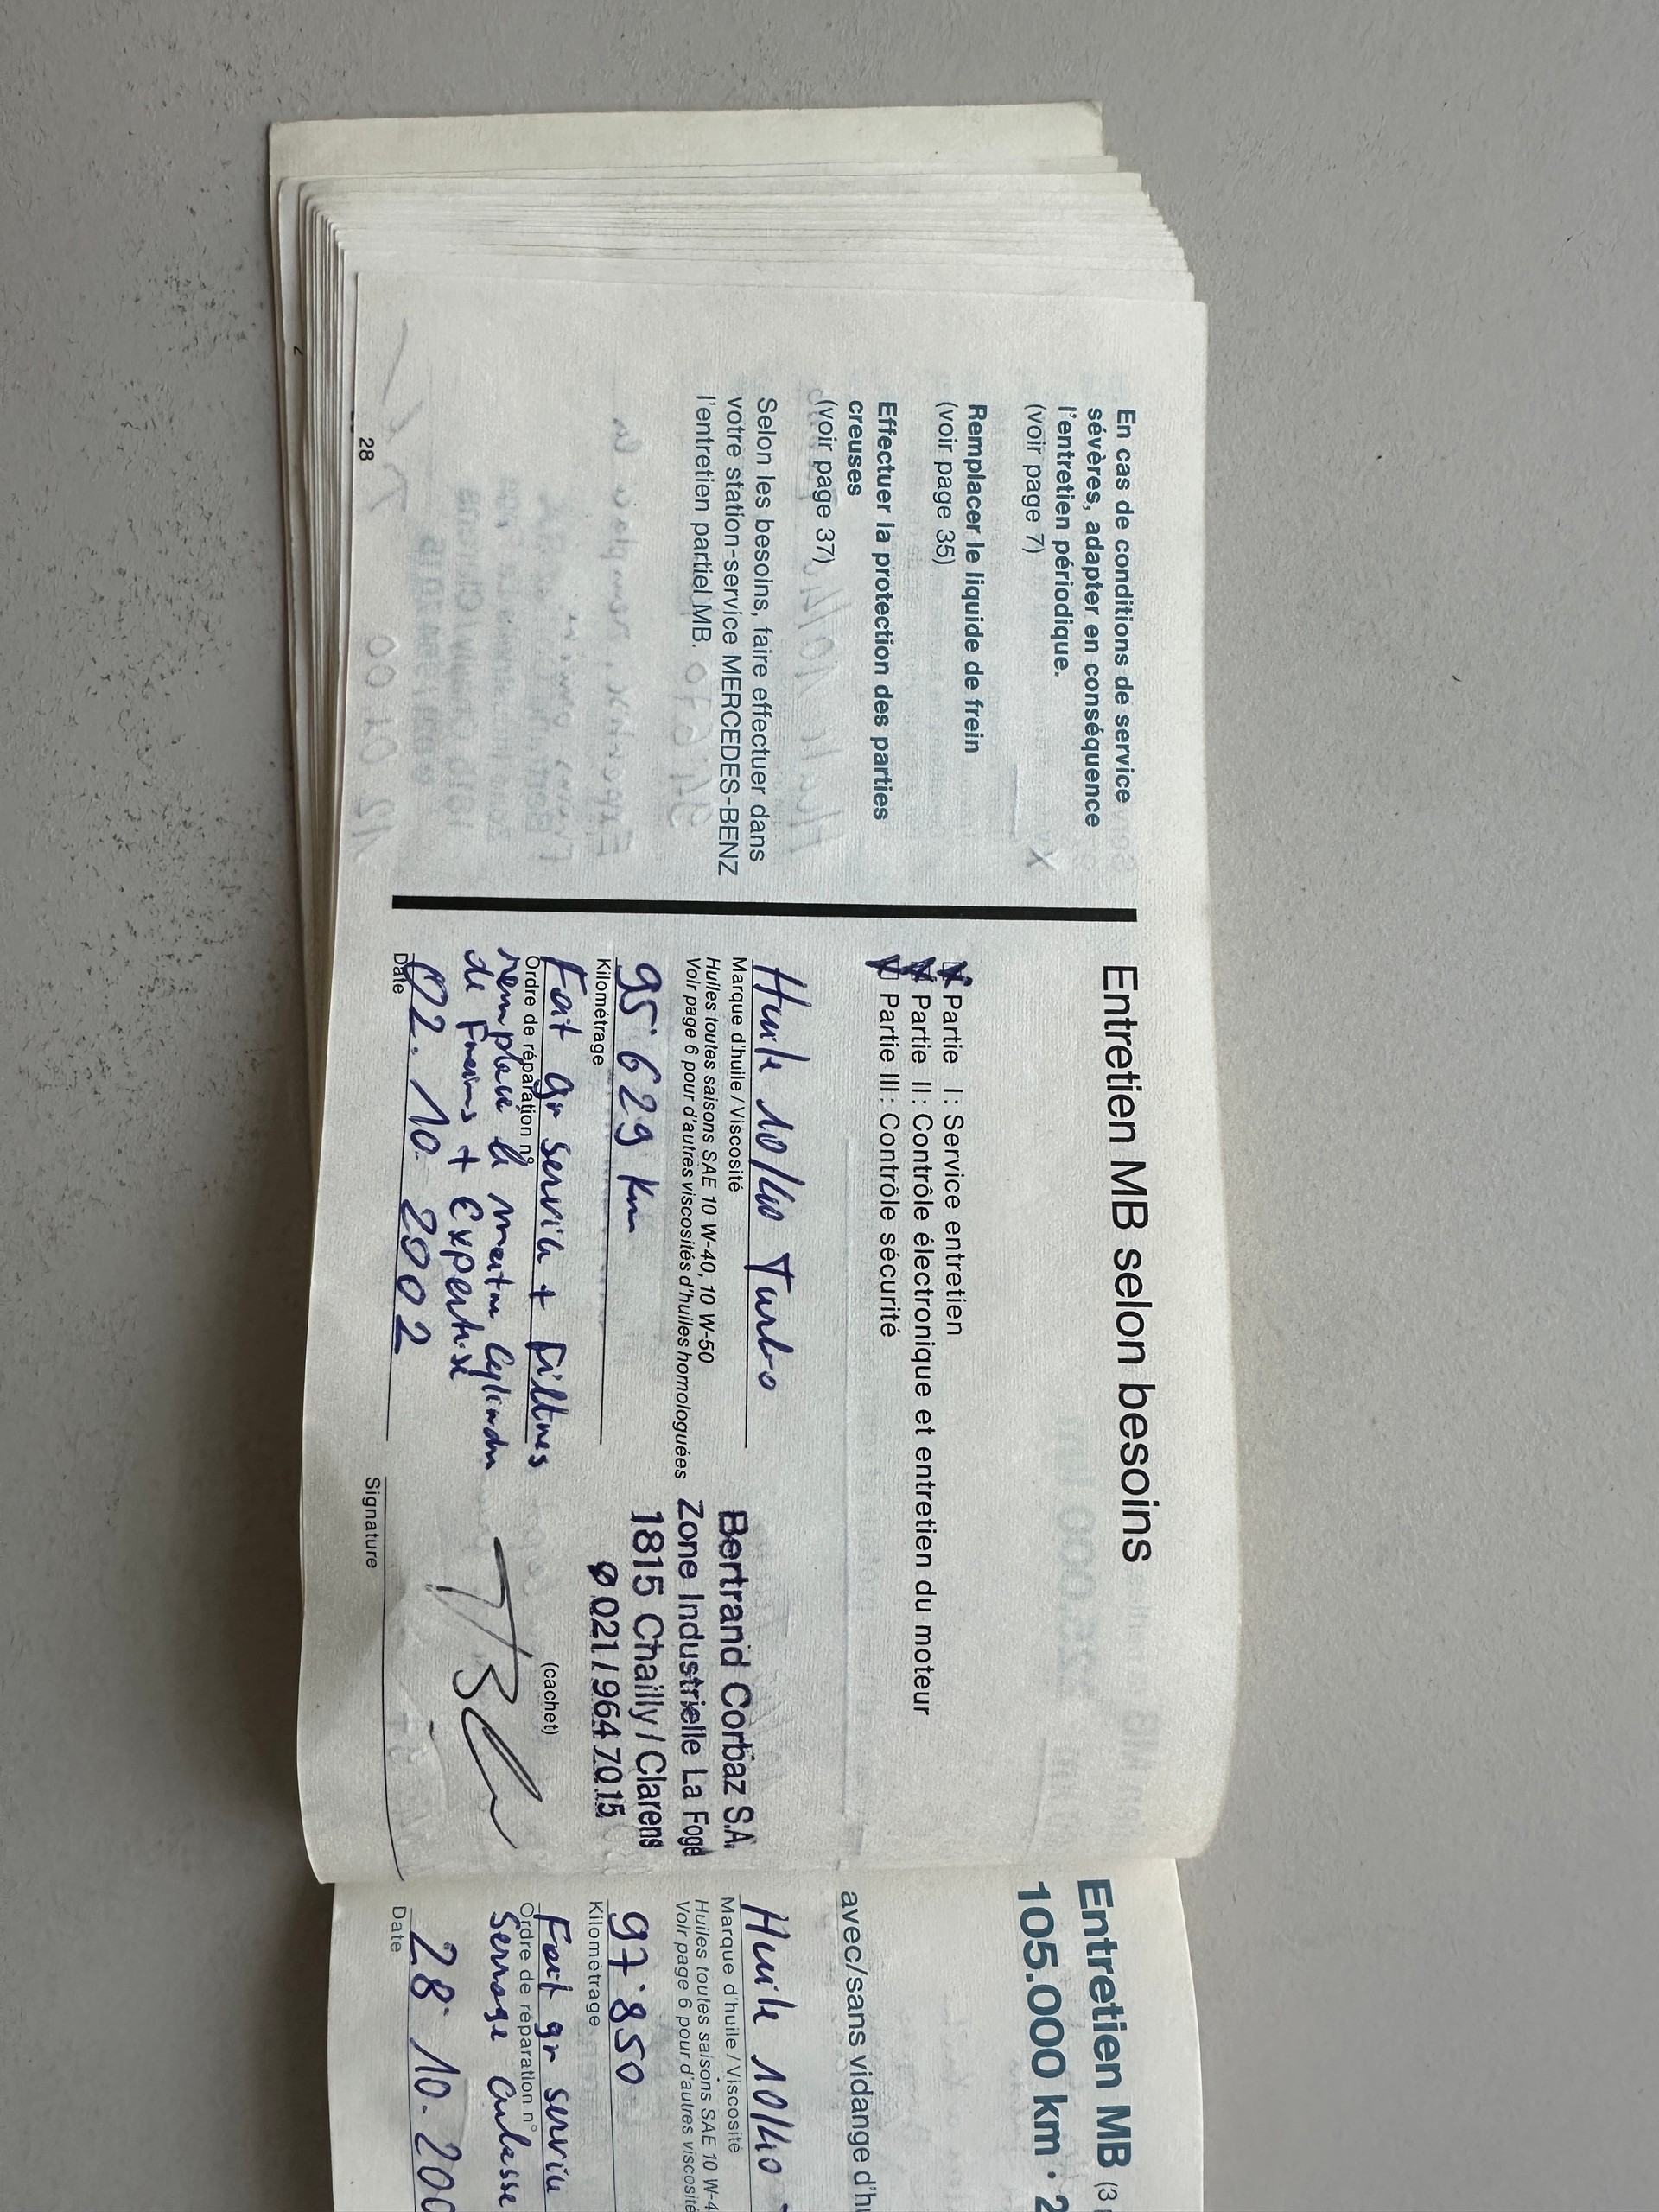 En cas de conditions de service
sévères, adapter en conséquence
l'entretien périodique.
(voir page 7)
Remplacer le liquide de frein
(voir page 35)
Effectuer la protection des parties
creuses
(voir page 37)
Selon les besoins, faire effectuer dans
votre station-service MERCEDES-BENZ
l'entretien partiel MB.
28
2
Entretien MB selon besoins
Partie I : Service entretien
Partie II : Contrôle électronique et entretien du moteur
Partie III : Contrôle sécurité
Huile 10/40 Turbo
Marque d'huile / Viscosité
Huiles toutes saisons SAE 10 W-40, 10 W-50
Voir page 6 pour d'autres viscosités d'huiles homologuées
95'629 Km
Kilométrage
Fait gr service + Filtres
Ordre de réparation n°
remplace le maitre cylindre
de Freins + Expertise
02. 10. 2002
Date
Bertrand Corbaz S.A.
Zone Industrielle La Foge
1815 Chailly / Clarens
021 / 964 70 15
(cachet)
Signature
Entretien MB (3
105.000 km · 2
avec/sans vidange d'hu
Huile 10/40
Marque d'huile / Viscosité
Huiles toutes saisons SAE 10 W-4
Voir page 6 pour d'autres viscosité
97'850
Kilométrage
Fait gr service
Ordre de réparation n°
Serrage culasse
28. 10. 200
Date